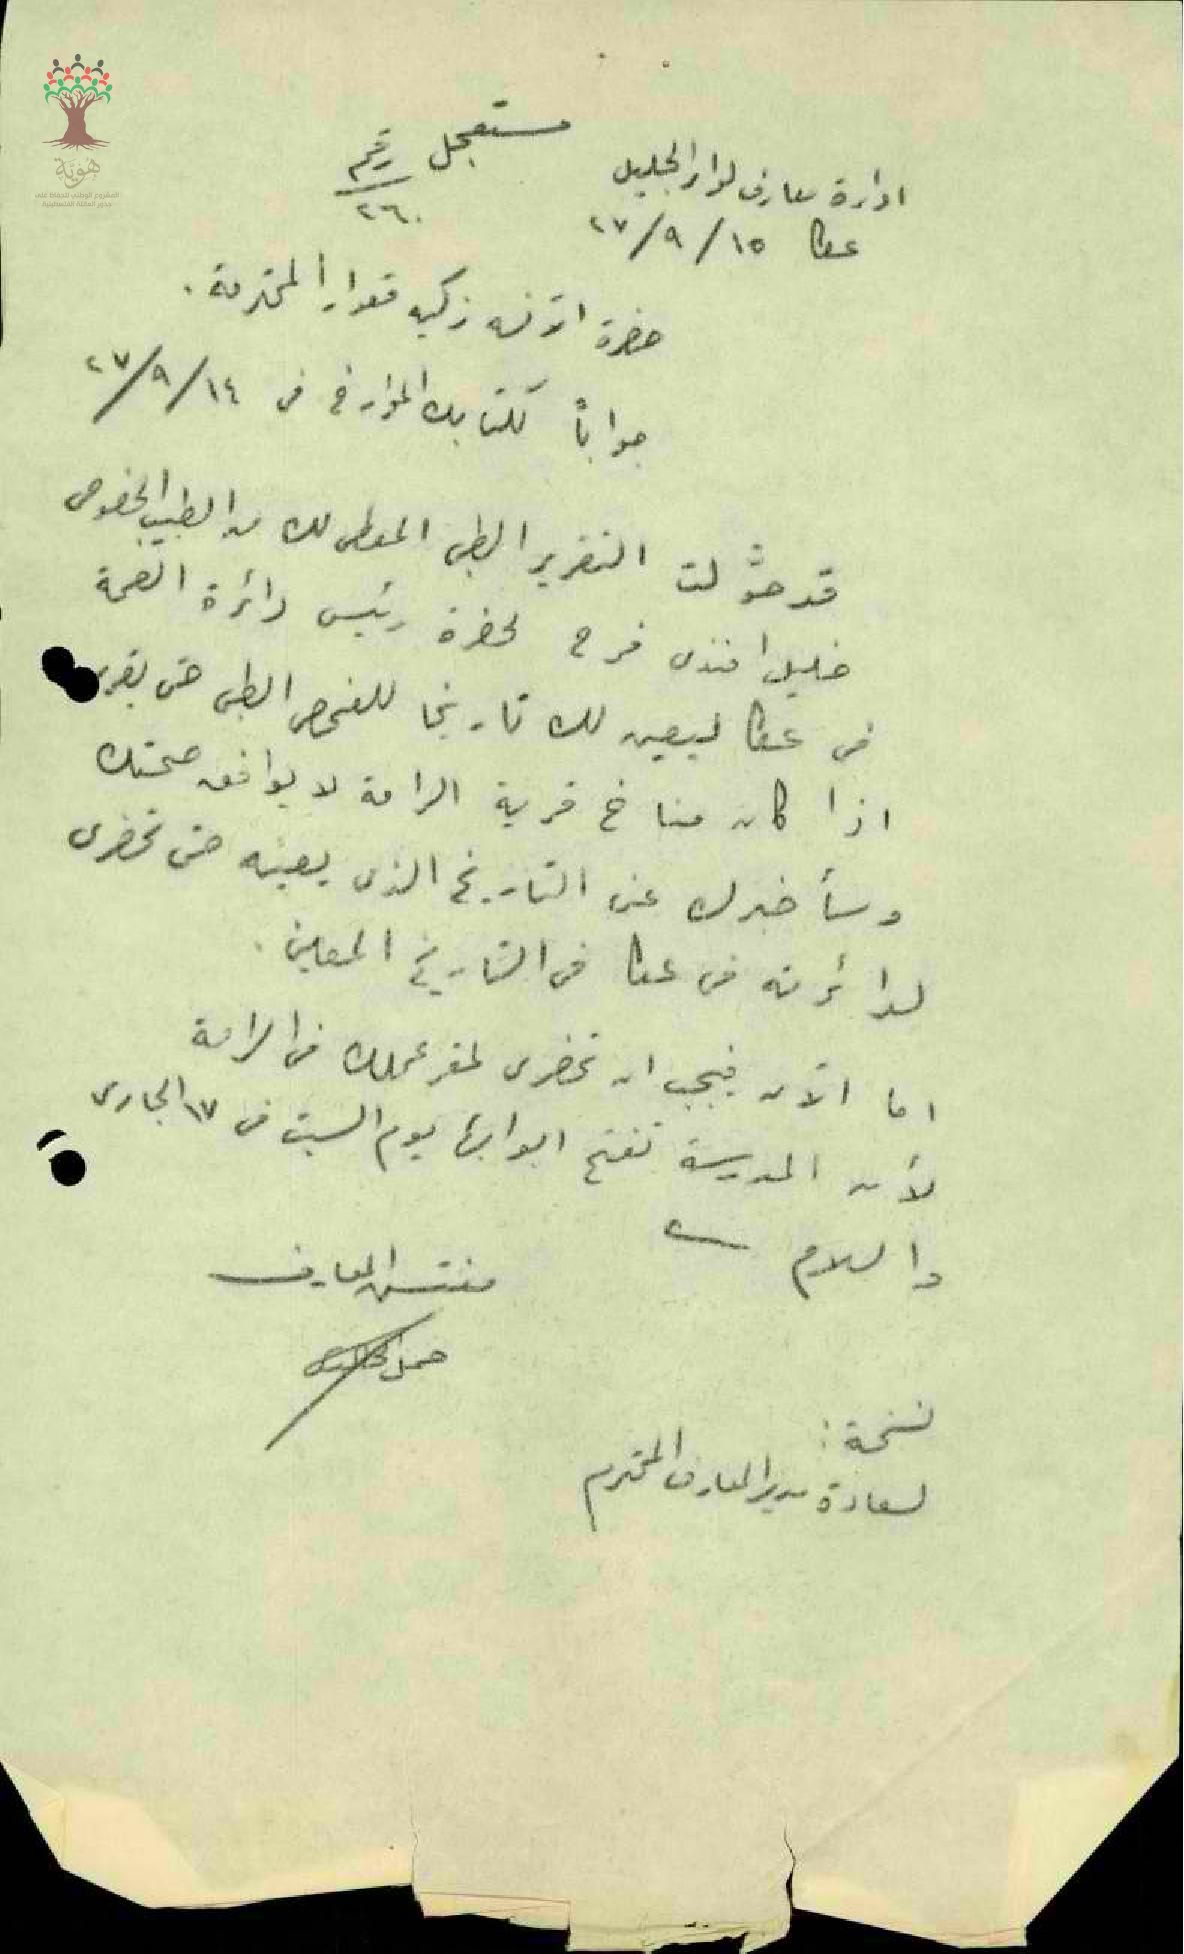 مستعجل
رقم
٢٦٠
ادارة معارف لواء الجليل
عكا ١٥/٩/٢٧
حضرة الآنسه زكيه قعوار المحترمة .
جواباً لكتابك المؤرخ في ١٤/٩/٢٧
قد حوّلت التقرير الطبي المعطى لك من الطبيب الخصوصي
خليل افندي فرح لحضرة رئيس دائرة الصحة
في عكا ليعين لك تاريخا للفحص الطبي حتى يقرر
اذا كان مناخ قرية الرامة لا يوافق صحتك
وسأخبرك عن التاريخ الذي يعينه حتى تحضري
لدائرته في عكا في التاريخ المعين .
اما الآن فيجب ان تحضري لمقر عملك في الرامة
لأن المدرسة تفتح ابوابها يوم السبت في ١٧ الجاري
والسلام
مفتش المعارف
نسخة :
لسعادة مدير المعارف المحترم
هوية
المشروع الوطني للحفاظ على
جذور العائلة الفلسطينية